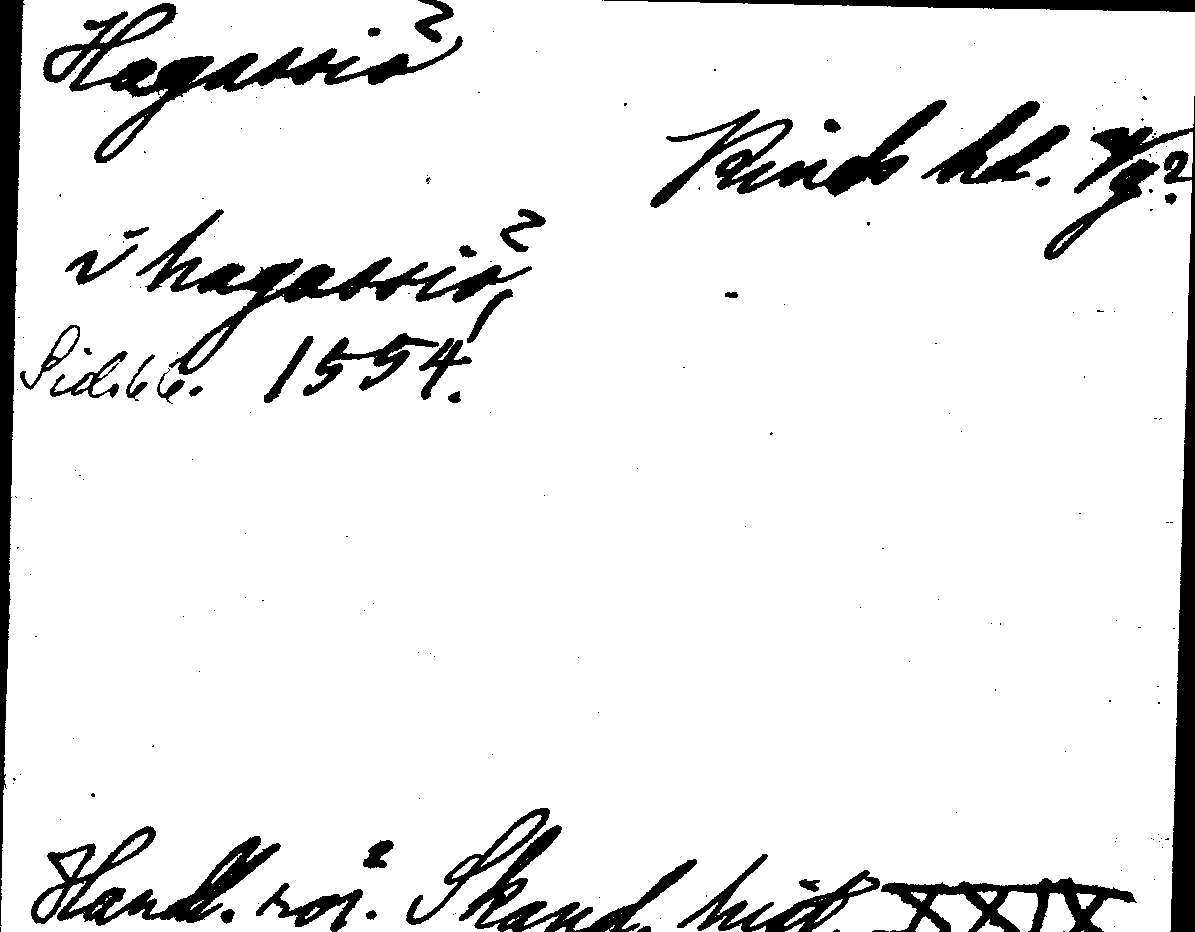 Hagassiö
Kinds hd. Vg.
v hagassiö
Sid. 66. 1554!
Handl. rör. Skand. hist. XXIX